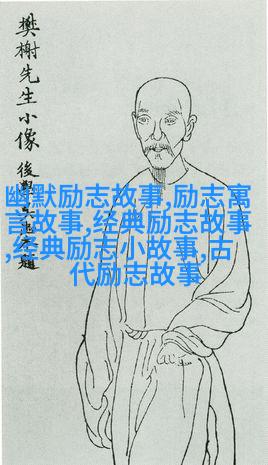 樊榭先生小像
後學
題
幽默励志故事,励志寓
言故事,经典励志故事
,经典励志小故事,古
代励志故事